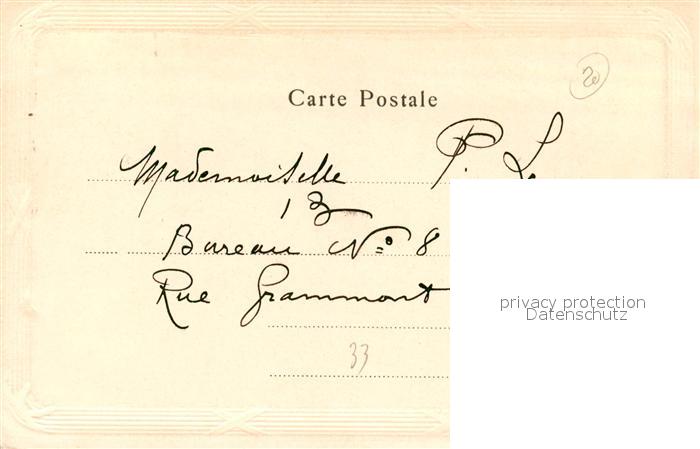 20
Carte Postale
Mademoiselle P. L
13
Bureau No. 8
Rue Grammont
privacy protection
Datenschutz
33